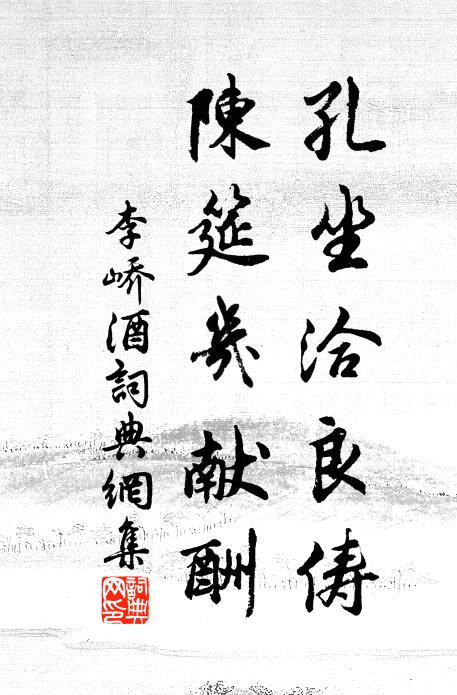 孔坐洽良俦
陳筵幾献酬
李嶠酒詞典網集
詞典网印